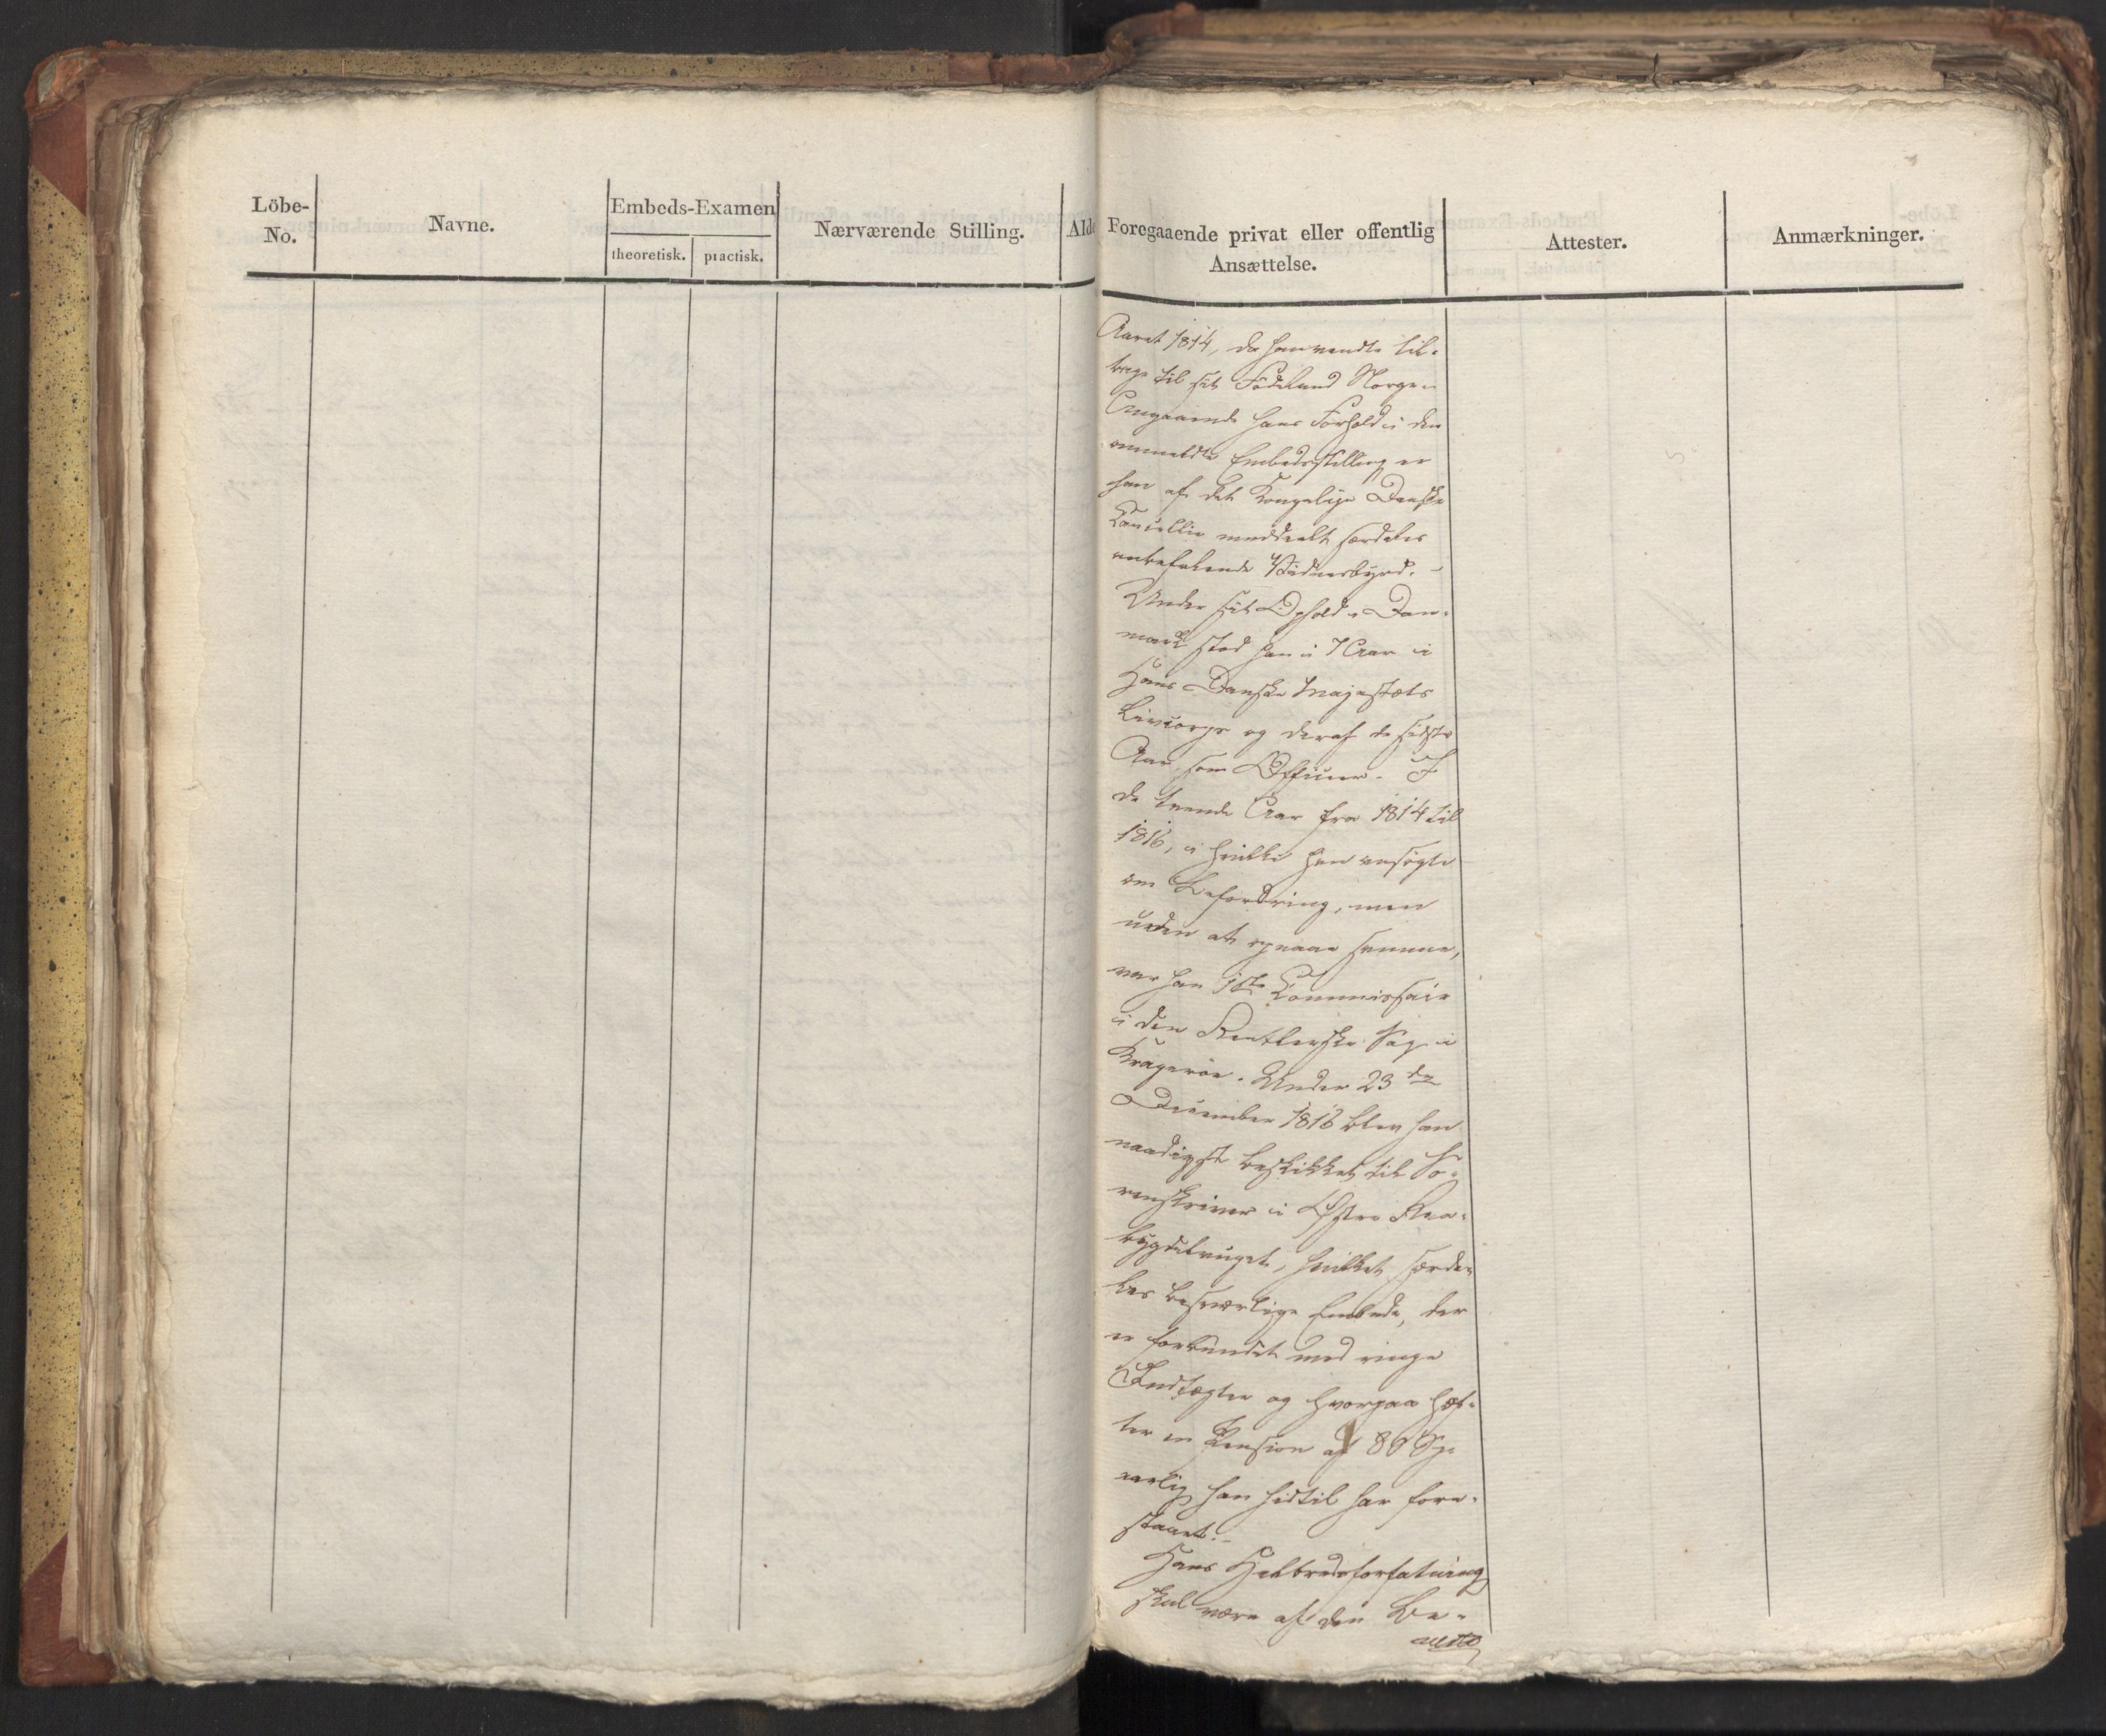 Löbe-
No.
Navne.
Embeds-Examen
theoretisk.
practisk.
Nærværende Stilling.
Alde
Foregaaende privat eller offentlig
Ansættelse.
Attester.
Anmærkninger.
Aaret 1814, da han vendte til-
bage til sit Födeland Norge.
Angaaende hans Forhold i den
anmeldte Embedsstilling er
han af det Kongelige Danske
Cancellie meddeelt særdeles
anbefalende Vidnesbyrd. -
Under sit Ophold i Dan-
mark stod han i 7 Aar i
Hans Danske Majestæts
Livcorps og deraf de sidste
Aar som Officier. I
de tvende Aar fra 1814 til
1816, i hvilke han ansögte
om Befordring, men
uden at opnaae samme,
var han 1ste Commissair
i den Sag i
Krageröe. Under 23de
December 1816 blev han
naadigst beskikket til So-
renskriver i Östre Raa-
bygdelauget, hvilket særde-
les besværlige Embede, der
er forbundet med ringe
Indtægter og hvorpaa hæf-
ter en Pension af 80 Sp:
aarlig han hidtil har fore-
staaet. -
Hans Helbredsforfatning
skal være af den Be-